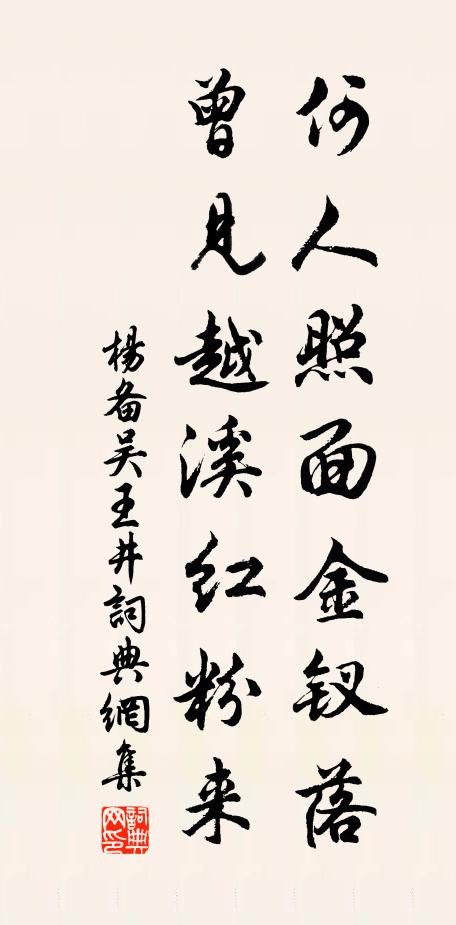 何人照面金钗落
曾见越溪红粉来
楊备吴王井詞典網集
詞典网印